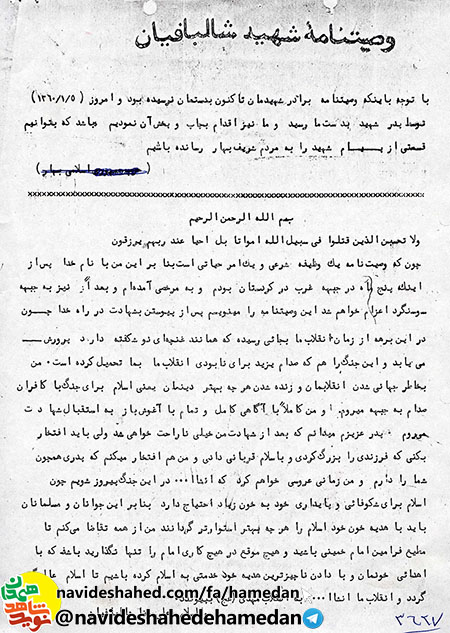 وصیتنامهٔ شهید شالبافیان
با توجه باینکه وصیتنامه برادر شهیدمان تاکنون بدستمان نرسیده بود و امروز (۱۳۶۰/۱/۵)
توسط پدر شهید بدست ما رسید و ما نیز اقدام بچاپ و پخش آن نمودیم باشد که بتوانیم
قسمتی از پیام شهید را به مردم شریف بهار رسانده باشیم
بسم الله الرحمن الرحیم
ولا تحسبن الذین قتلوا فی سبیل الله امواتا بل احیا عند ربهم یرزقون
چون که وصیتنامه یک وظیفه شرعی و یک امر حیاتی است بنا بر این من با نام خدا پس از
اینکه پنج ماه در جبهه غرب در کردستان بودم و به مرخصی آمده‌ام و بعد از نیز به جبهه
سوسنگرد اعزام خواهم شد این وصیتنامه را مینویسم پس از پیوستن بشهادت در راه خدا چون
در این برهه از زمان انقلاب ما بجائی رسیده که همانند غنچه‌ای نو شکفته دارد پرورش
می یابد و این جنگ را هم که صدام یزید برای نابودی انقلاب ما بما تحمیل کرده است ۰ من
بخاطر جهانی شدن انقلابمان و زنده شدن هر چه بهتر دینمان یعنی اسلام برای جنگ با کافران
صدام به جبهه میروم ۰ و من کاملاً با آگاهی کامل و تمام با آغوش باز به استقبال شهادت
میروم ۰ پدر عزیزم میدانم که بعد از شهادت من خیلی ناراحت خواهی شد ولی باید افتخار
بکنی که فرزندی را بزرگ کردی و باسلام قربانی دادی و من هم افتخار میکنم که پدری همچون
شما را دارم و من زمانی عروسی خواهم کرد که انشاا۰۰۰ در این جنگ پیروز شویم چون
اسلام برای شکوفائی و پایداری خود به خون زیاد احتیاج دارد بنا بر این جوانان و مسلمانان
باید با هدیه خون خود اسلام را هر چه بهتر استوارتر گردانند من از همه تقاضا می‌کنم تا
مطیع فرامین امام خمینی باشید و هیچ موقع در هیچ کاری امام را تنها نگذارید باشد که با
اهدائی خونمان و با دادن ناچیزترین هدیه خود خدمتی به اسلام کرده باشیم تا اسلام
گردد و انقلاب ما انشاا۰۰۰ به انقلاب مهدی (عج) بپیوندد
navideshahed.com/fa/hamedan
@navideshahedehamedan
۳۶۲۷
نوید شاهد همدان